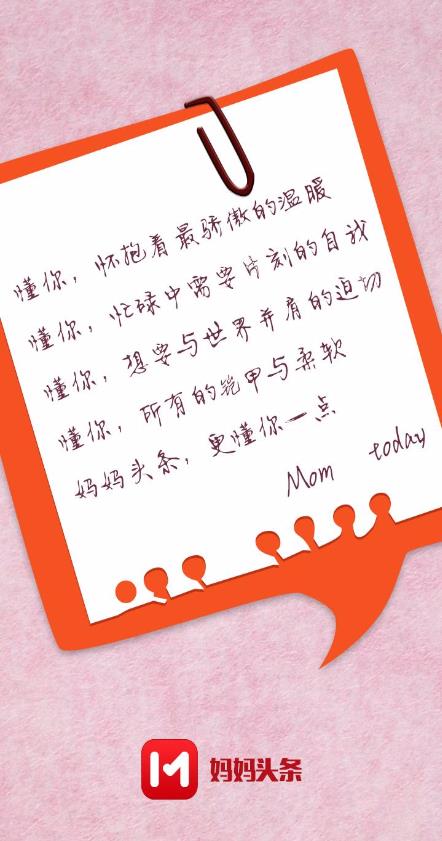 懂你，怀抱着最骄傲的温暖
懂你，忙碌中需要片刻的自我
懂你，想要与世界并肩的迫切
懂你，所有的铠甲与柔软
妈妈头条，更懂你一点
Mom today
妈妈头条